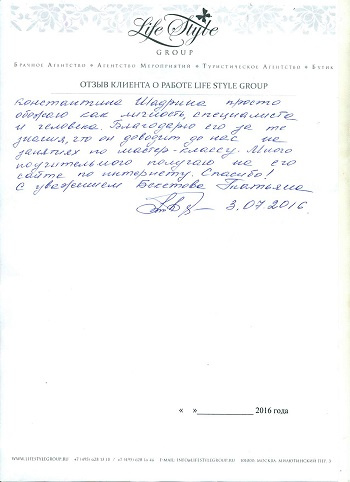 Life Style
GROUP
Брачное Агентство • Агентство Мероприятий • Туристическое Агентство • Бутик
ОТЗЫВ КЛИЕНТА О РАБОТЕ LIFE STYLE GROUP
Константина Шадрина просто
обожаю как личность, специалиста
и человека. Благодарю его за те
знания, что он доводит до нас на
занятиях по мастер-классу. Много
поучительного получаю на его
сайте по интернету. Спасибо!
С уважением Бекетова Татьяна
3.07.2016
« »______________ 2016 года
WWW.LIFESTYLEGROUP.RU E-MAIL: INFO@LIFESTYLEGROUP.RU МОСКВА, МИЛЮТИНСКИЙ ПЕР. 3